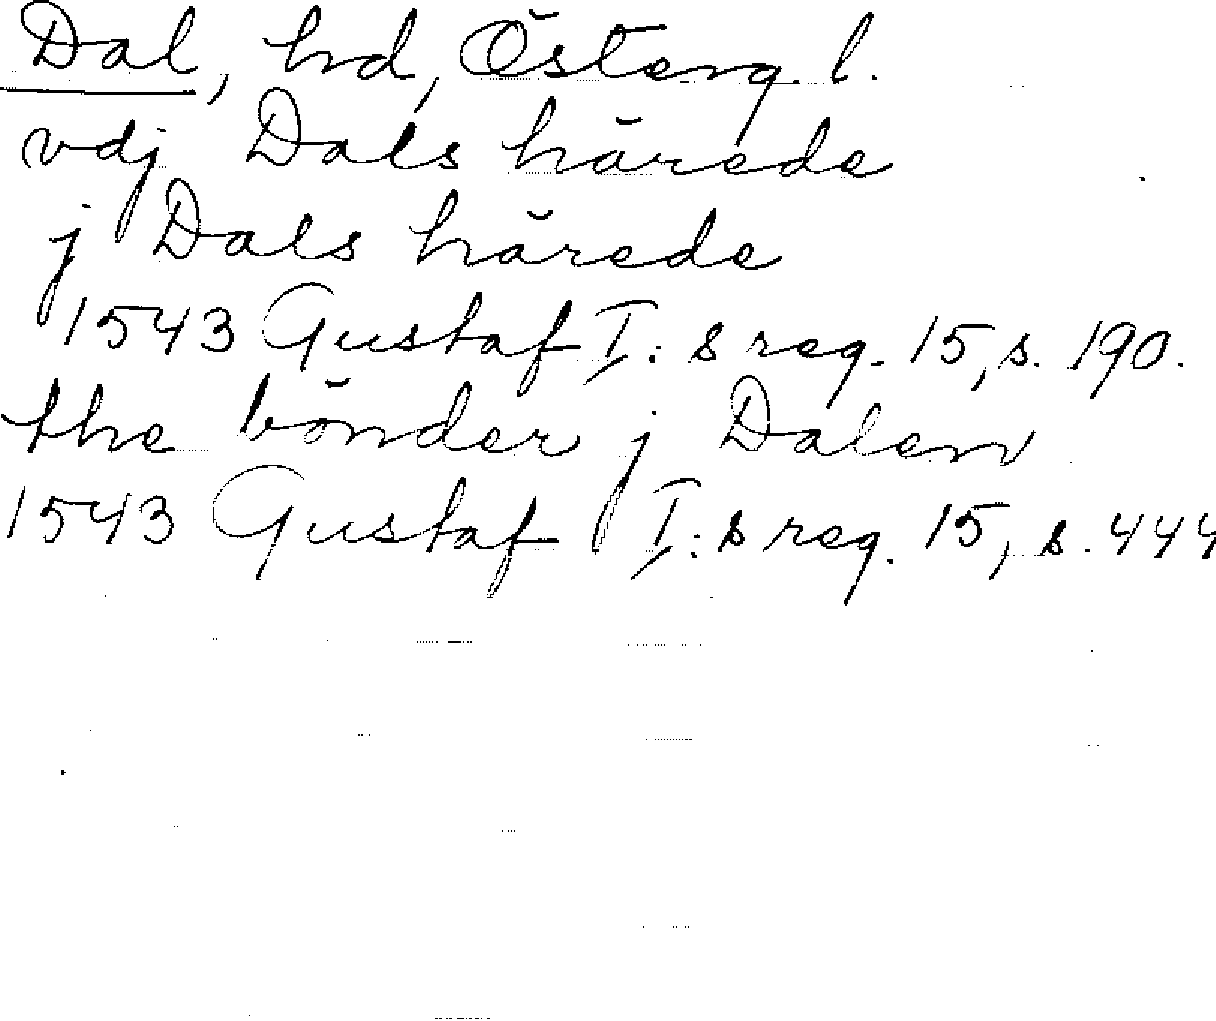 Dal, hd, Österg. l.
vdj Dals härede
j Dals härede
1543 Gustaf I:s reg. 15, s. 190.
the bönder j Dalenn
1543 Gustaf I:s reg. 15, s. 444